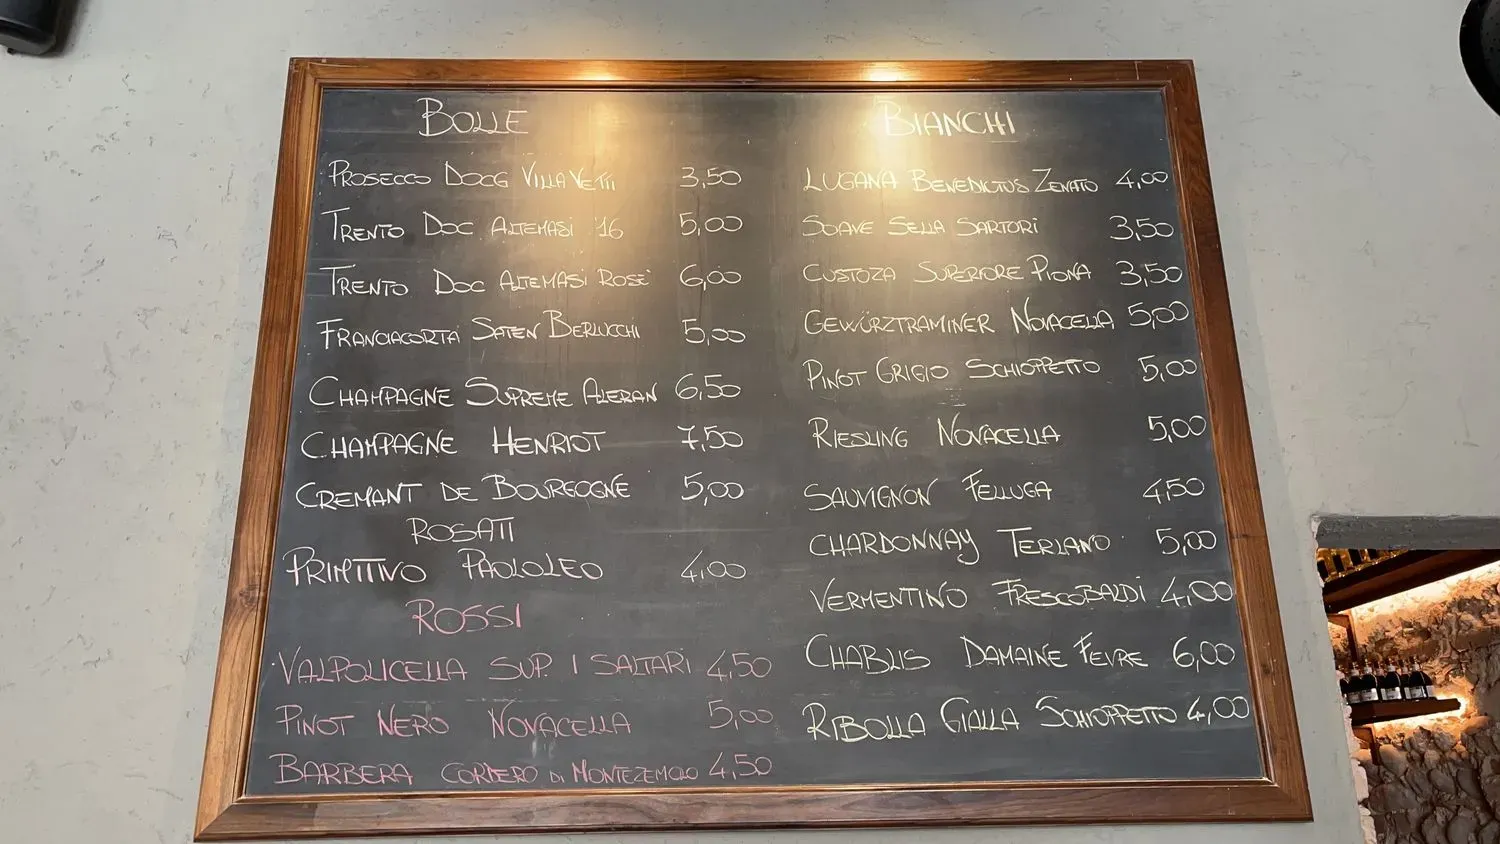 BOLLE
PROSECCO DOCG VILLA VETTI 3,50
TRENTO DOC ALTEMASI '16 5,00
TRENTO DOC ALTEMASI ROSE' 6,00
FRANCIACORTA SATEN BERLUCCHI 5,00
CHAMPAGNE SUPREME ALERAN 6,50
CHAMPAGNE HENRIOT 7,50
CREMANT DE BOURGOGNE 5,00
ROSATI
PRIMITIVO PAOLOLEO 4,00
ROSSI
VALPOLICELLA SUP. I SALTARI 4,50
PINOT NERO NOVACELLA 5,00
BARBERA CORDERO DI MONTEZEMOLO 4,50
BIANCHI
LUGANA BENEDICTUS ZENATO 4,00
SOAVE SELLA SARTORI 3,50
CUSTOZA SUPERIORE PIONA 3,50
GEWÜRZTRAMINER NOVACELLA 5,00
PINOT GRIGIO SCHIOPPETTO 5,00
RIESLING NOVACELLA 5,00
SAUVIGNON FELLUGA 4,50
CHARDONNAY TERLANO 5,00
VERMENTINO FRESCOBALDI 4,00
CHABLIS DAMAINE FEVRE 6,00
RIBOLLA GIALLA SCHIOPPETTO 4,00